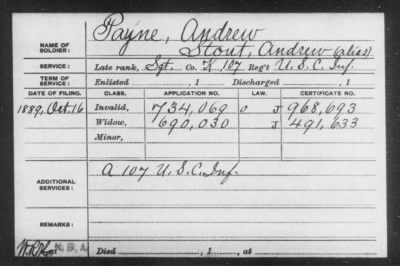 Payne, Andrew
NAME OF SOLDIER: Stout, Andrew (alias)
SERVICE: Late rank, Sgt. Co. K, 107 Reg't U.S.C. Inf.
TERM OF SERVICE: Enlisted , 1 Discharged , 1
DATE OF FILING. CLASS. APPLICATION NO. LAW. CERTIFICATE NO.
1889, Oct. 16 Invalid, 734,069 0 J 968,693
Widow, 690,030 J 491,633
Minor,
ADDITIONAL SERVICES: A 107 U.S.C. Inf.
REMARKS:
Died , 1 , at